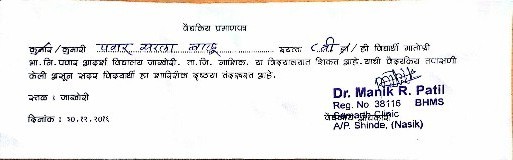 वैद्यकिय प्रमाणपत्र
कुमार / कुमारी पवार सरला इयत्ता ८ वी हा / ही विद्यार्थी मातोश्री
भा.जि.पवार आदर्श विद्यालय जाखोरी. ता.जि. नाशिक. या विद्यालयात शिकत आहे. याची वैद्यकिय तपासणी
केली असून सदर विद्यार्थी हा शारीरिक दृष्ट्या तंदुरुस्त आहे.
स्तळ : जाखोरी
दिनांक : १०.१२.२०१९
Dr. Manik R. Patil
Reg. No 38116 BHMS
Clinic
A/P. Shinde, (Nasik)